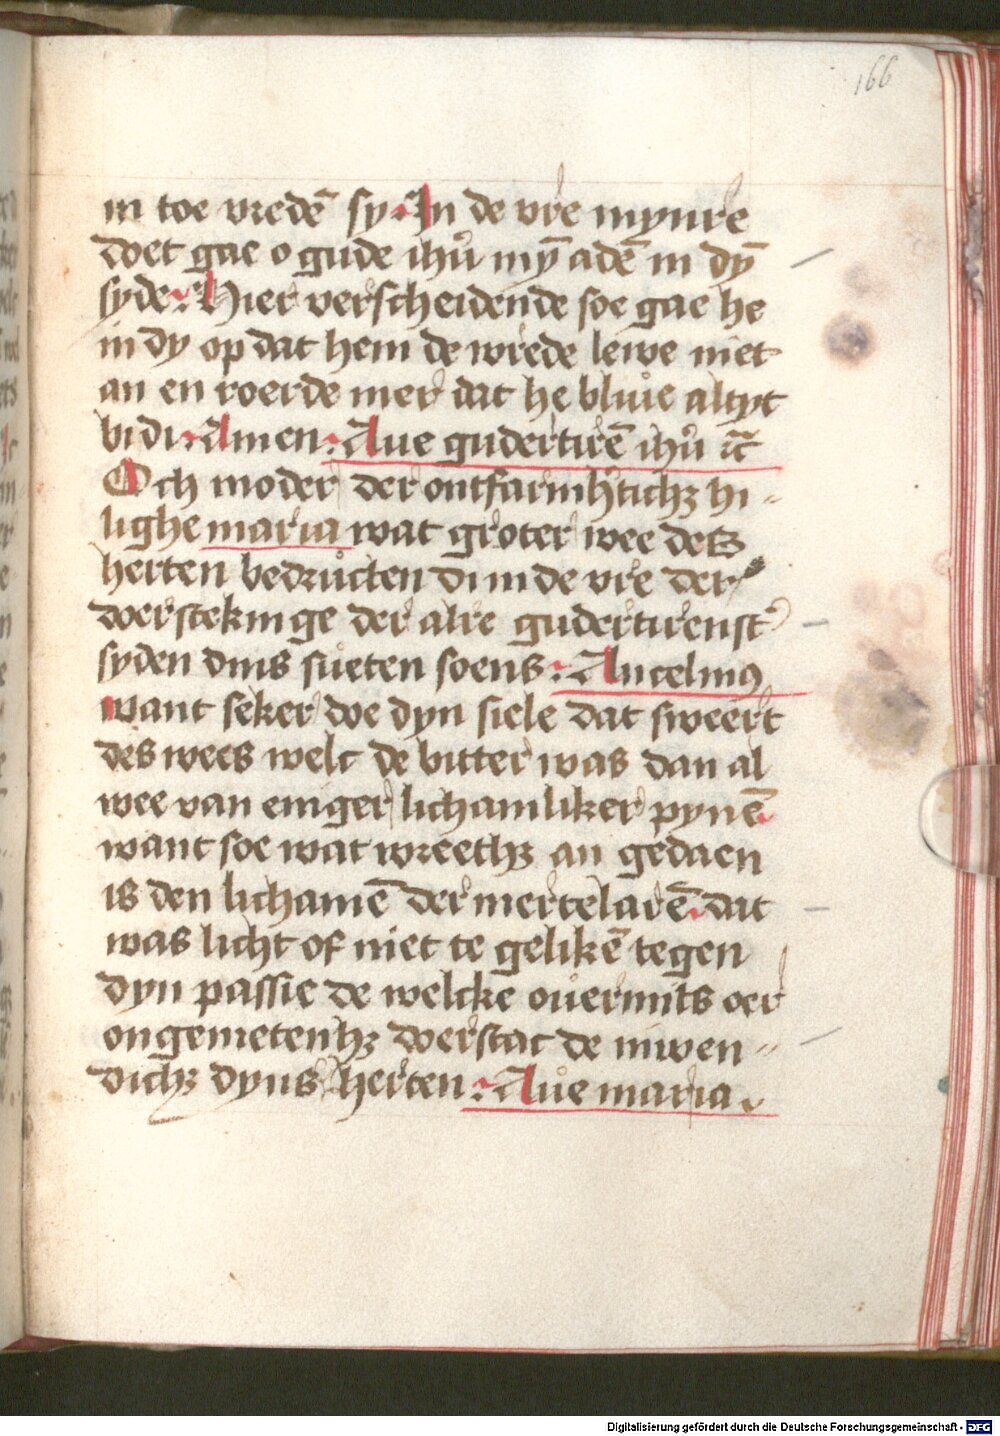 166
in toe vredē sy. In de vre mynre
doet gae o gude ihū mȳ adē in dȳ
syde. Hier verscheidende soe gae he
in dy op dat hem de wrede lewe niet
an en roerde mer dat he bliue altyt
bi di. Amen. Aue gudertirē ihū
Och moder der ontfarmh'ticheꝫ hi-
lighe maria wat groter wee dets
herten bedructen di in de vre der
doerstekinge der alre gudertirenst'
syden dins sueten soens. Ancelmꝰ
want seker doe dyn siele dat sweert
des wees welc de bitter was dan al
wee van eniger lichamliker pynē
want soe wat wreethꝫ an gedaen
is den lichamē der mertelarē. dat
was licht of niet te gelikē tegen
dyn passie de welcke ouermits oer
ongemetenhꝫ doerstac de inwen-
dichꝫ dyns herten. Aue maria.
Digitalisierung gefördert durch die Deutsche Forschungsgemeinschaft - DFG